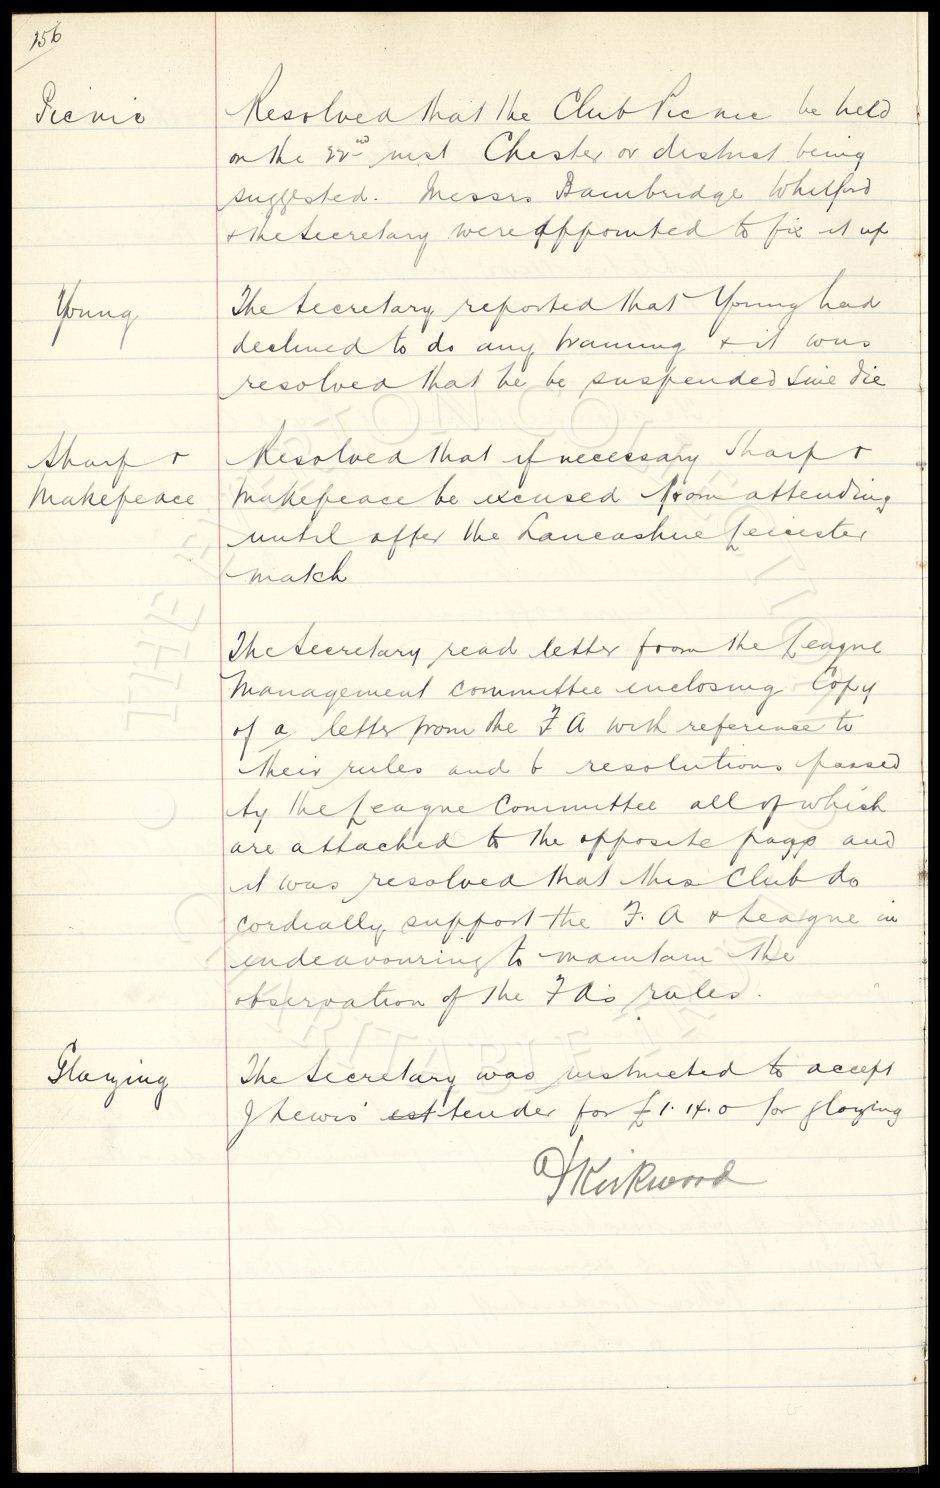 156
Picnic Resolved that the Club Picnic be held
on the 22nd inst Chester or district being
suggested. Messrs Bainbridge Whitford
& the Secretary were appointed to fix it up
Young The Secretary reported that Young had
declined to do any training & it was
resolved that he be suspended Sine Die
Sharp & Resolved that if necessary Sharp &
Makepeace Makepeace be excused from attending
until after the Lancashire Leicester
match
The Secretary read letter from the League
Management committee enclosing Copy
of a letter from the F A with reference to
their rules and 6 resolutions passed
by the League Committee all of which
are attached to the opposite page and
it was resolved that this Club do
cordially support the F. A & League in
endeavouring to maintain the
observation of the F A's rules.
Glazing The Secretary was instructed to accept
J Lewis' est tender for £1.14.0 for glazing
Kirkwood
THE EVERTON COLLECTION
CHARITABLE TRUST